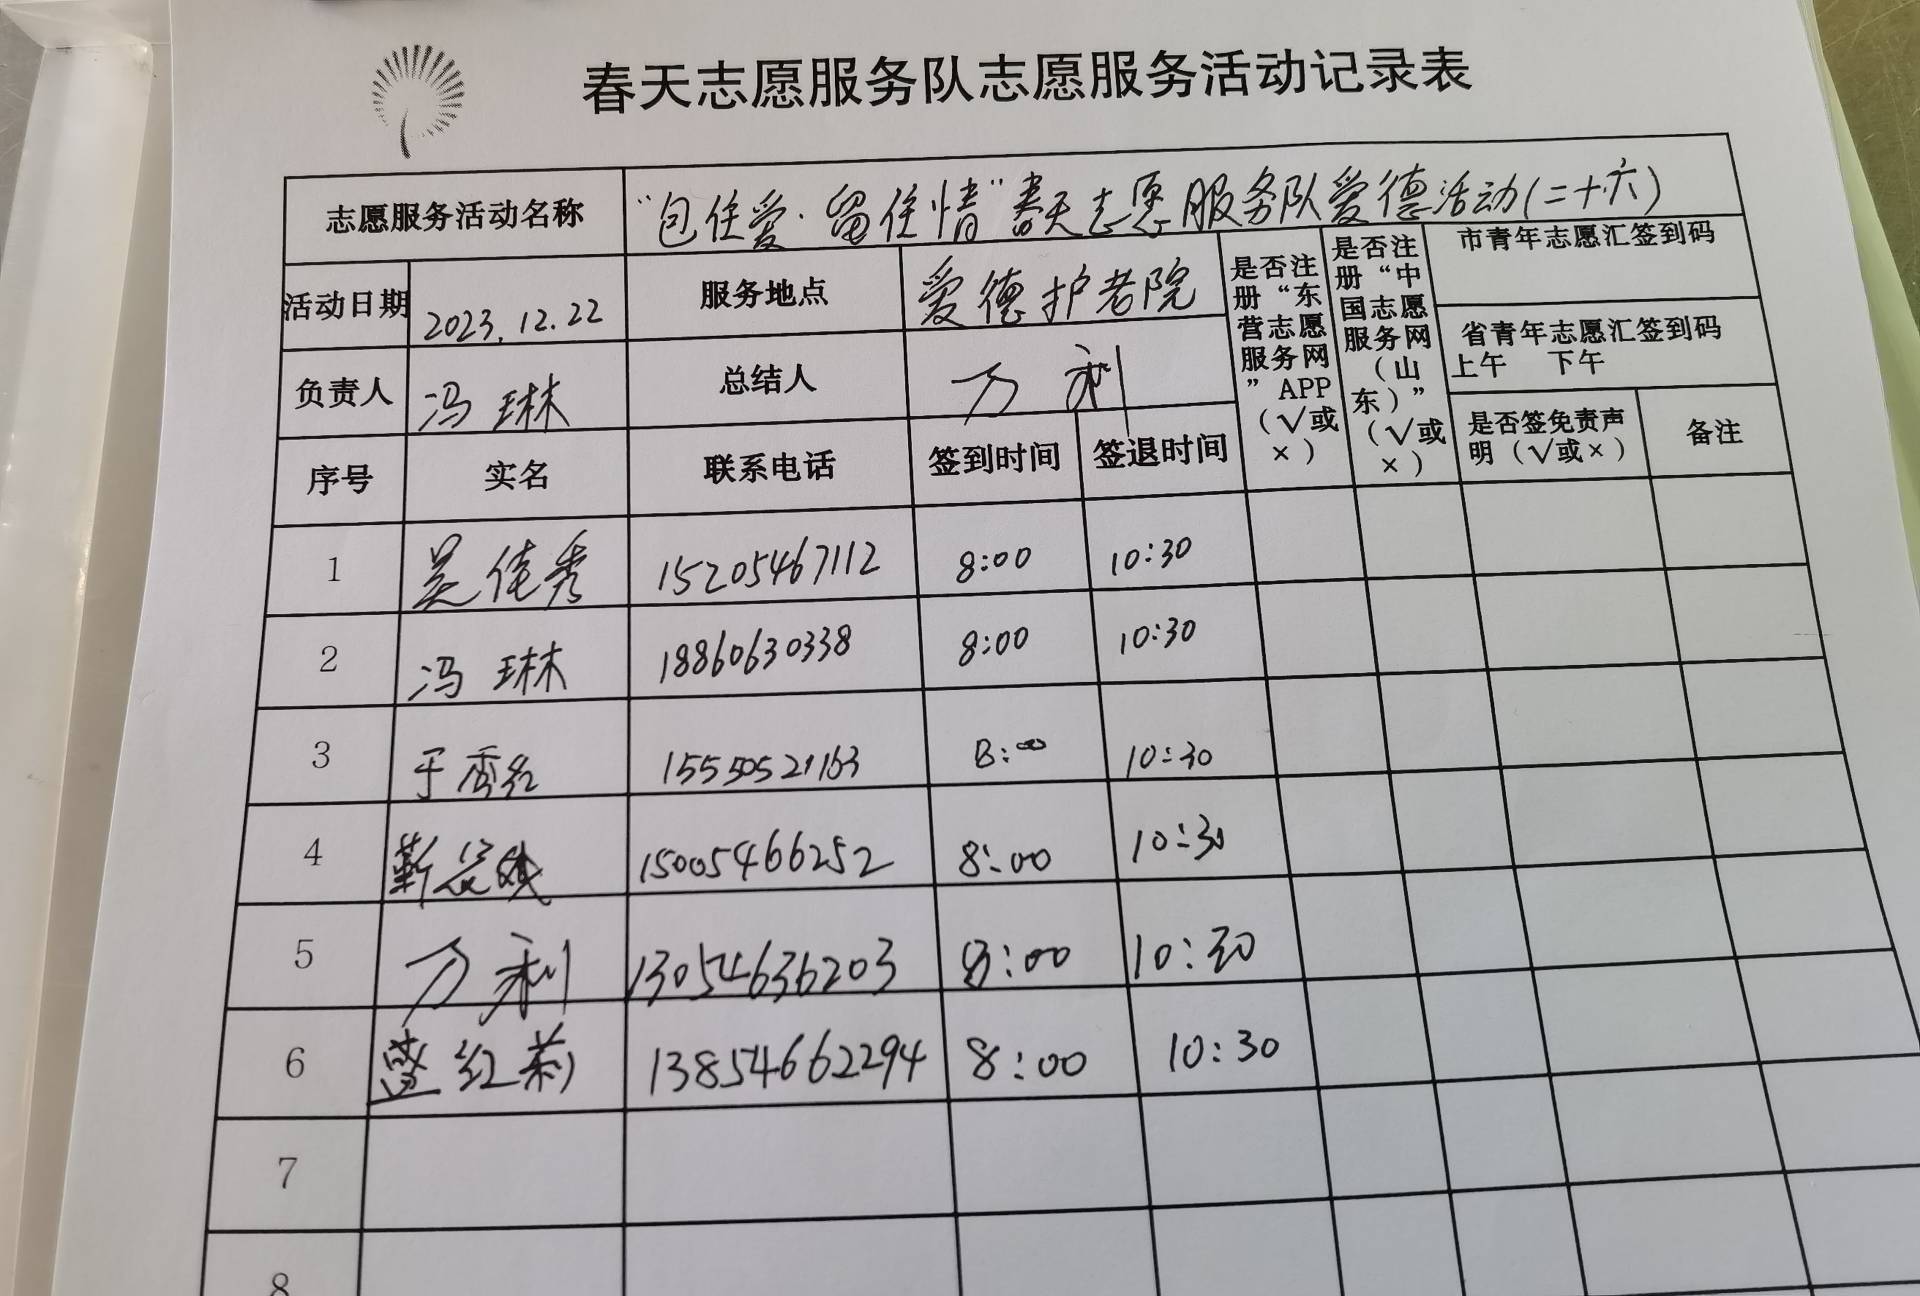 春天志愿服务队志愿服务活动记录表
志愿服务活动名称 “包住爱·留住情”春天志愿服务队爱德活动(二十六)
活动日期 2023.12.22 服务地点 爱德护老院
负责人 冯琳 总结人 万利
是否注册“东营志愿服务网”APP（√或×）
是否注册“中国志愿服务网（山东）”（√或×）
市青年志愿汇签到码
省青年志愿汇签到码
上午 下午
序号 实名 联系电话 签到时间 签退时间 是否签免责声明（√或×） 备注
1 吴佳秀 15205467112 8:00 10:30
2 冯琳 18860630338 8:00 10:30
3 于秀红 15550521163 8:00 10:30
4 靳 15005466252 8:00 10:30
5 万利 13054636203 8:00 10:30
6 红莉 13854662294 8:00 10:30
7
8